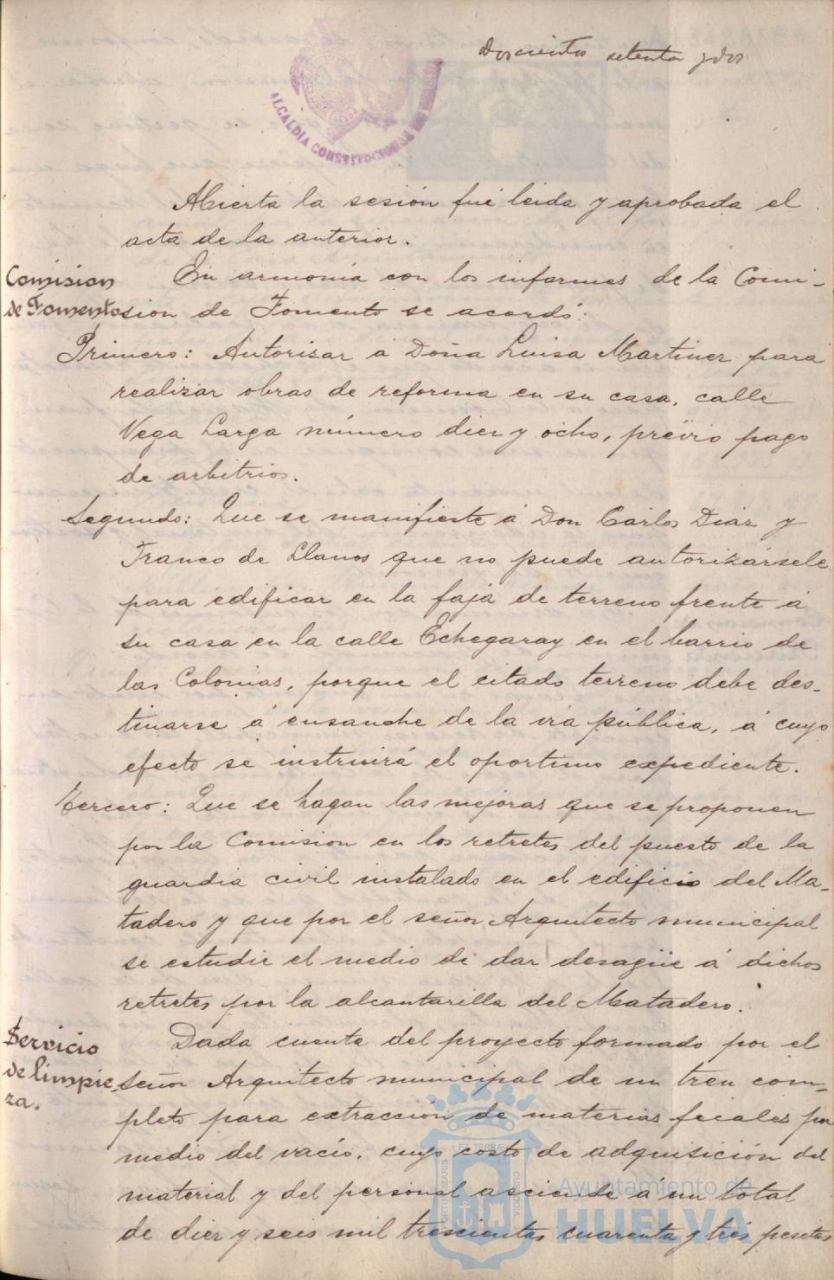 Doscientos setenta y dos
ALCALDIA CONSTITUCIONAL
Abierta la sesión fué leida y aprobada el
acta de la anterior.
Comision
de Fomento
En armonía con los informes de la Comi-
sion de Fomento se acordó:
Primero: Autorizar á Doña Luisa Martinez para
realizar obras de reforma en su casa, calle
Vega Larga número diez y ocho, previo pago
de arbitrios.
Segundo: Que se manifieste á Don Carlos Diaz y
Franco de Llanos que no puede autorizársele
para edificar en la faja de terreno frente á
su casa en la calle Echegaray en el barrio de
las Colonias, porque el citado terreno debe des-
tinarse á ensanche de la via pública, á cuyo
efecto se instruirá el oportuno expediente.
Tercero: Que se hagan las mejoras que se proponen
por la Comision en los retretes del puesto de la
guardia civil instalado en el edificio del Ma-
tadero y que por el señor Arquitecto municipal
se estudie el medio de dar desagüe á dichos
retretes por la alcantarilla del Matadero.
Servicio
de limpie
za.
Dada cuenta del proyecto formado por el
señor Arquitecto municipal de un tren com-
pleto para extraccion de materias fecales por
medio del vacío, cuyo costo de adquisición del
material y del personal asciende a un total
de diez y seis mil trescientas cuarenta y tres pesetas
Ayuntamiento de
HUELVA